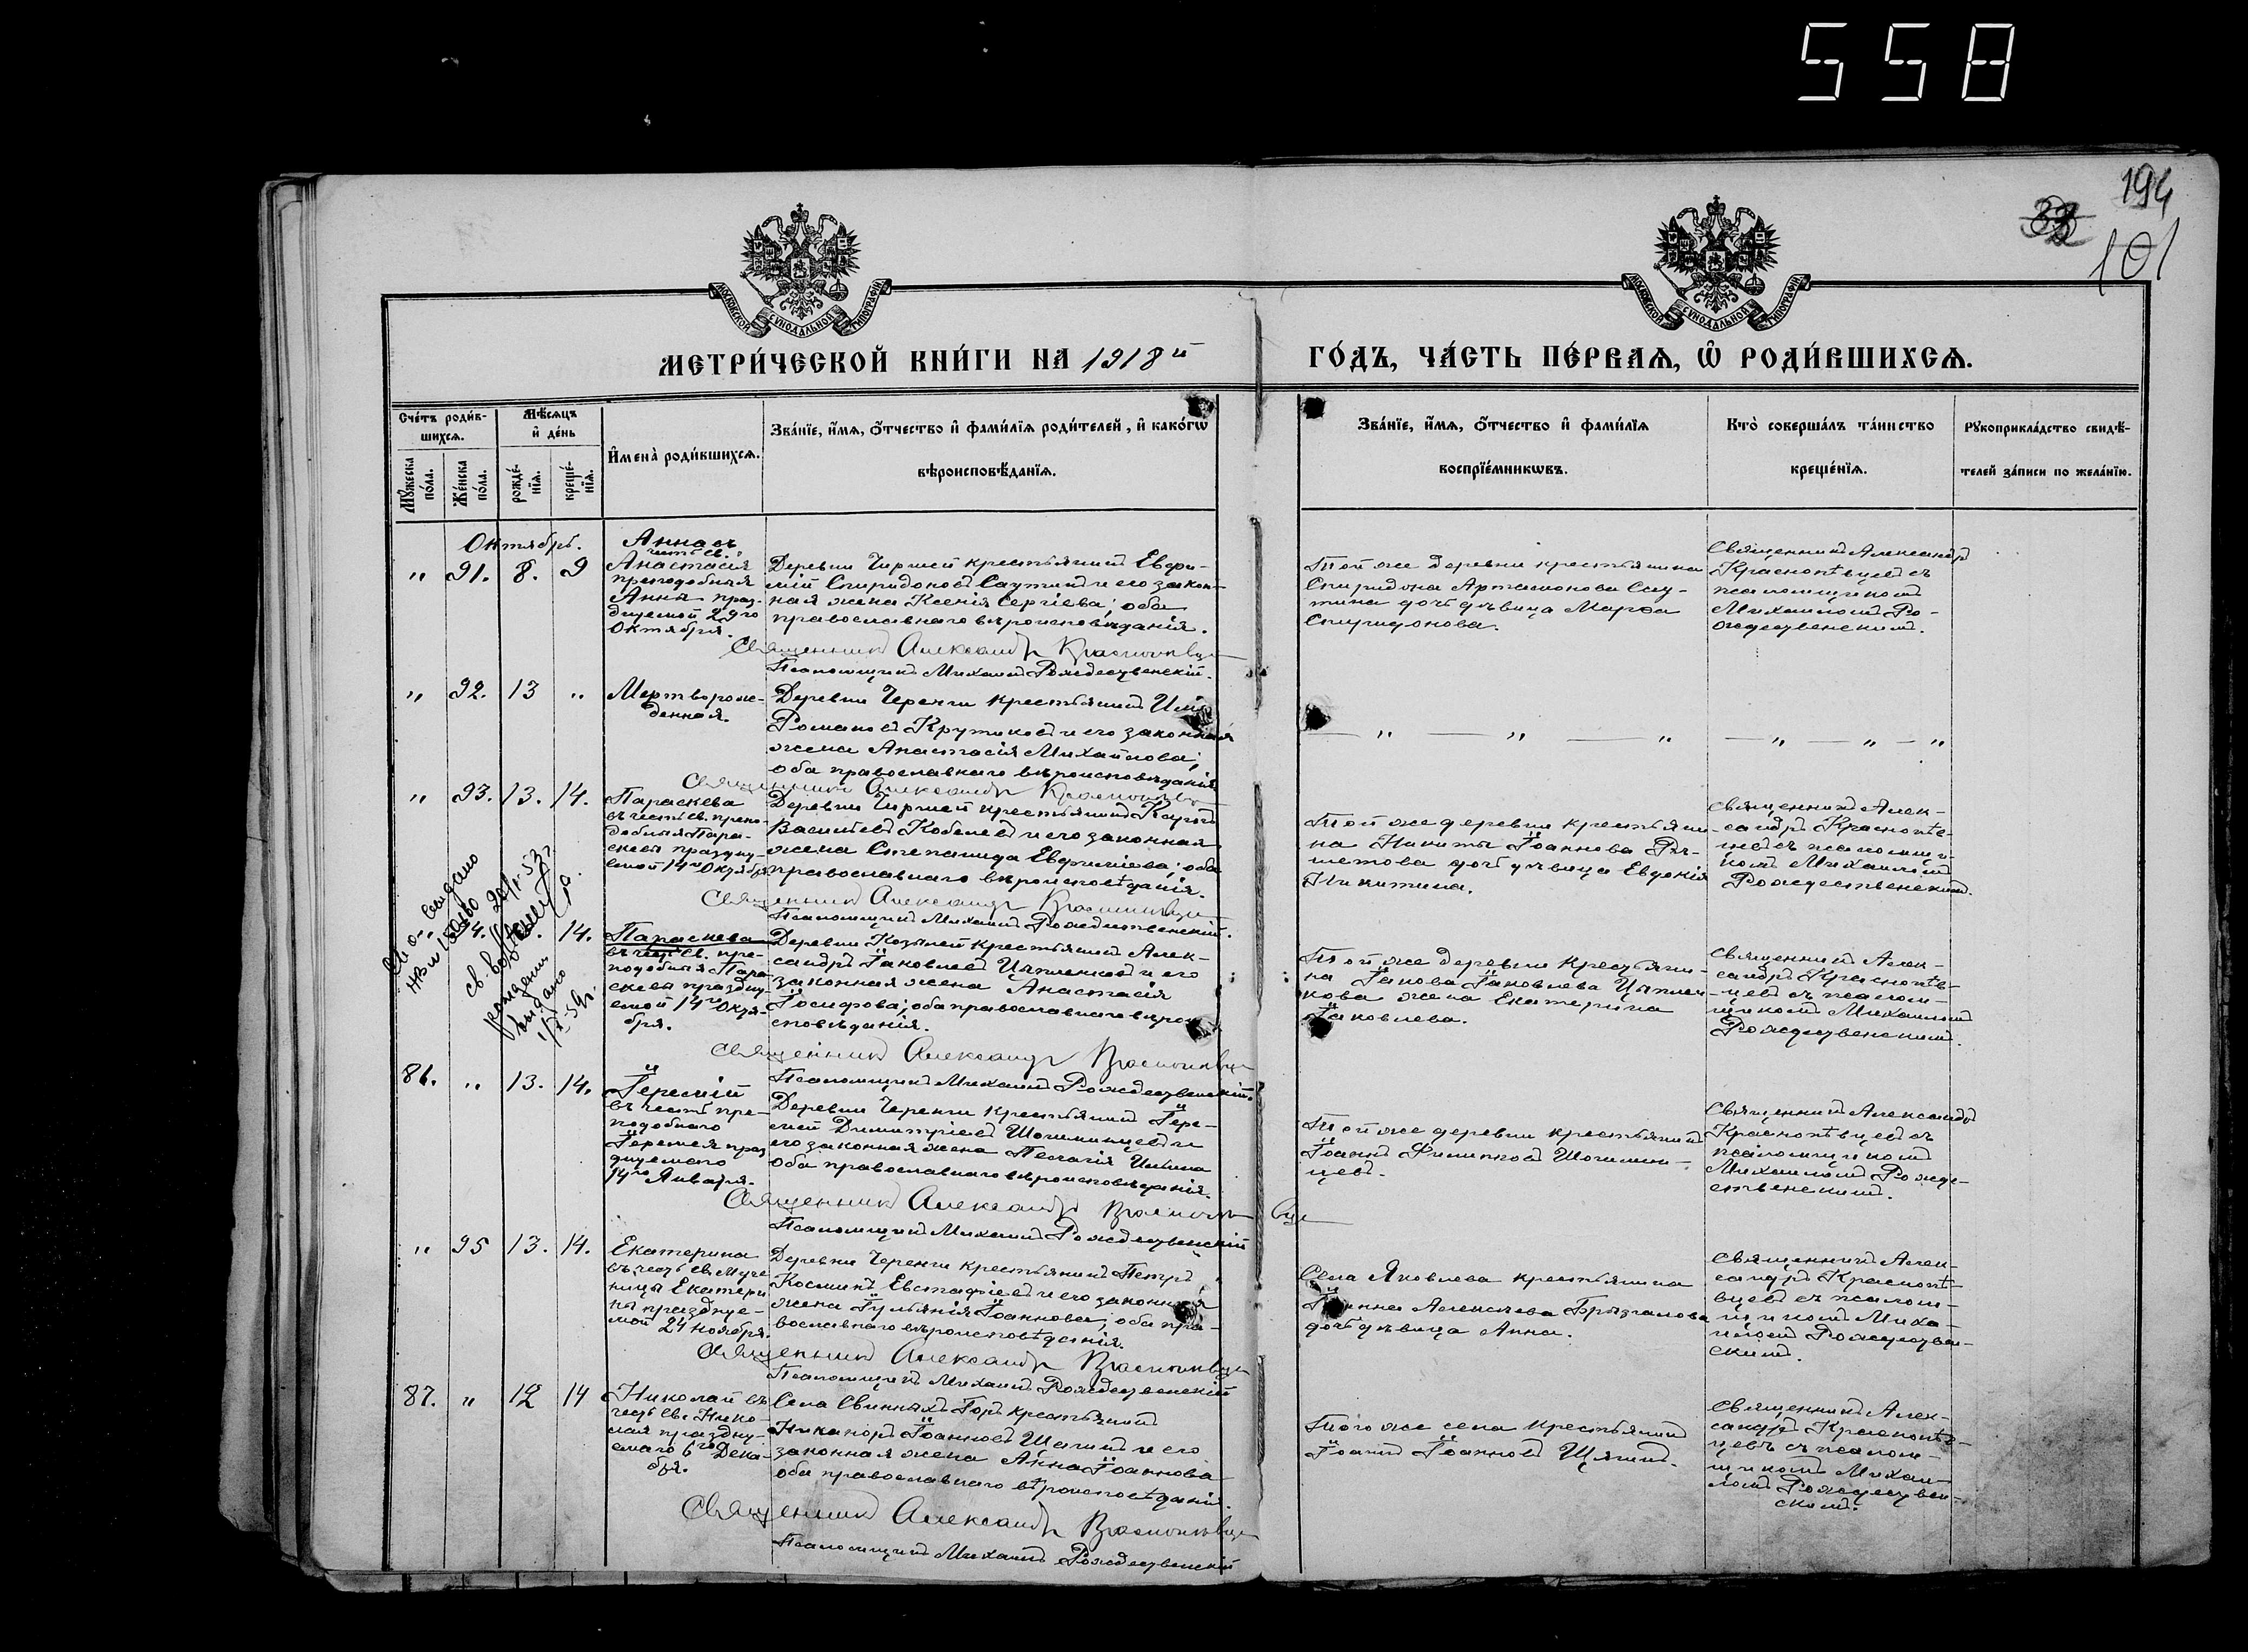 558
194
33
101
МОСКОВСКОЙ СѴНОДАЛЬНОЙ ТИПОГРАФІИ
МОСКОВСКОЙ СѴНОДАЛЬНОЙ ТИПОГРАФІИ
МЕТРИ́ЧЕСКОЙ КНИ́ГИ НА 1918й
ГО́ДЪ, ЧА́СТЬ ПЕ́РВАѦ, Ѡ҆ РОДИ́ВШИХСѦ.
Сче́тъ роди́в-
шихсѧ.
Мꙋ́жеска по́ла.
Же́нска по́ла.
Мѣ́сѧцъ
и҆ де́нь
рожде́-
нїѧ.
креще́-
нїѧ.
И҆мена̀ роди́вшихсѧ.
Зва́нїе, и҆́мѧ, ѻ҆́тчество и҆ фами́лїѧ роди́телей, и҆ како́гѡ
вѣроисповѣ́данїѧ.
Зва́нїе, и҆́мѧ, ѻ҆́тчество и҆ фами́лїѧ
воспрїе́мникѡвъ.
Кто̀ соверша́лъ та́инство
креще́нїѧ.
Рꙋкоприкла́дство свидѣ́-
телей за́писи по жела́нїю.
Октябрь.
" 91. 8. 9
Анна въ
честь св.
Анастасія
преподобныя
Анны праз-
днуемой 29го
Октября.
Деревни Чиршей крестьянинъ Евѳи-
мій Спиридоновъ Саутинъ и его закон-
ная жена Ксенія Сергіева; оба
православнаго вѣроисповѣданія.
Священникъ Александръ Краснопѣвцев
Псаломщикъ Михаилъ Рождественскій.
Той же деревни крестьянина
Спиридона Артамонова Сау-
тина дочь дѣвица Марѳа
Спиридонова.
Священникъ Александръ
Краснопѣвцевъ съ
псаломщикомъ
Михаиломъ Ро-
ждественскимъ.
" 92. 13 "
Мертворож-
денная.
Деревни Черенги крестьянинъ
Романовъ Крутиковъ и его законная
жена Анастасія Михайлова;
оба православнаго вѣроисповѣданія
Священникъ Александръ Краснопѣвцев
— " — " — "
— " — " — "
" 93. 13. 14.
Параскева
въ честь св. препо-
добныя Пара-
скевы праздну-
емой 14го Октября
Деревни Чиршей крестьянинъ
Васильевъ Кобелевъ и его законная
жена Степанида Евѳиміева; оба
православнаго вѣроисповѣданія.
Священникъ Александръ Краснопѣвцев
Псаломщикъ Михаилъ Рождественскій.
Той же деревни крестьяни-
на Никиты Іоаннова
дочь дѣвица Евдокія
Никитина.
Священникъ Алек-
сандръ Краснопѣв-
цевъ съ псаломщи-
комъ Михаиломъ
Рождественскимъ.
св-во
выдано
1/X-59г.
14.
Параскева
въ честь св. пре-
подобныя Пара-
скевы праздну-
емой 14го Октя-
бря.
Деревни Козылей крестьянинъ Алек-
сандръ Іаковлевъ Цыпленковъ и его
законная жена Анастасія
Іосифова; оба православнаго вѣрои-
сповѣданія.
Священникъ Александръ Краснопѣвцев
Псаломщикъ Михаилъ Рождественскій.
Той же деревни крестьяни-
на Іакова Іаковлева Цыплен-
кова жена Екатерина
Іаковлева.
Священникъ Алек-
сандръ Краснопѣв-
цевъ съ псалом-
щикомъ Михаиломъ
Рождественскимъ.
86. " 13. 14.
Іеремій
въ честь пре-
подобнаго
Іеремея праз-
днуемаго
14го Января.
Деревни Черенги крестьянинъ Іере-
мій Димитріевъ Шагиминцевъ и
его законная жена Пелагія Ильина
оба православнаго вѣроисповѣданія.
Священникъ Александръ Краснопѣвцев
Псаломщикъ Михаилъ Рождественскій
Той же деревни крестьянинъ
Іоаннъ Филипповъ Шагимин-
цевъ.
Священникъ Александръ
Краснопѣвцевъ съ
псаломщикомъ
Михаиломъ Рожде-
ственскимъ.
" 95 13. 14.
Екатерина
въ честь св. муче-
ницы Екатери-
ны празднуе-
мой 24 ноября.
Деревни Черенги крестьянинъ Петръ
Косминъ Евстафіевъ и его законная
жена Іуліанія Іоаннова; оба пра-
вославнаго вѣроисповѣданія.
Священникъ Александръ Краснопѣвцев
Псаломщикъ Михаилъ Рождественскій
Села Яковлева крестьянина
Іоанна Алексѣева Брызгалова
дочь дѣвица Анна.
Священникъ Алек-
сандръ Краснопѣ-
вцевъ съ псалом-
щикомъ Миха-
иломъ Рождествен-
скимъ.
87. " 12 14
Николай въ
честь св. Нико-
лая праздну-
емаго 6го Дека-
бря.
Села Свинныхъ Горъ крестьянинъ
Никаноръ Іоанновъ Щягинъ и его
законная жена Анна Іоаннова
оба православнаго вѣроисповѣданія.
Священникъ Александръ Краснопѣвцев
Псаломщикъ Михаилъ Рождественскій
Того же села крестьянинъ
Іоаннъ Іоанновъ Щягинъ.
Священникъ Алек-
сандръ Краснопѣв-
цевъ съ псалом-
щикомъ Михаи-
ломъ Рождествен-
скимъ.